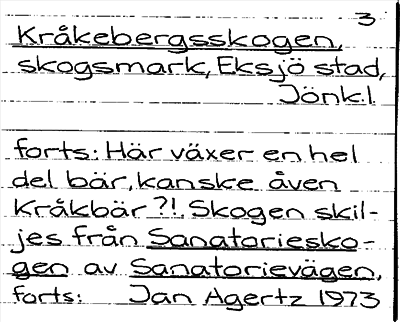 3
Kråkebergsskogen,
skogsmark, Eksjö stad,
Jönk.l.
forts: Här växer en hel
del bär, kanske även
Kråkbär?!. Skogen skil-
jes från Sanatoriesko-
gen av Sanatorievägen,
forts: Jan Agertz 1973